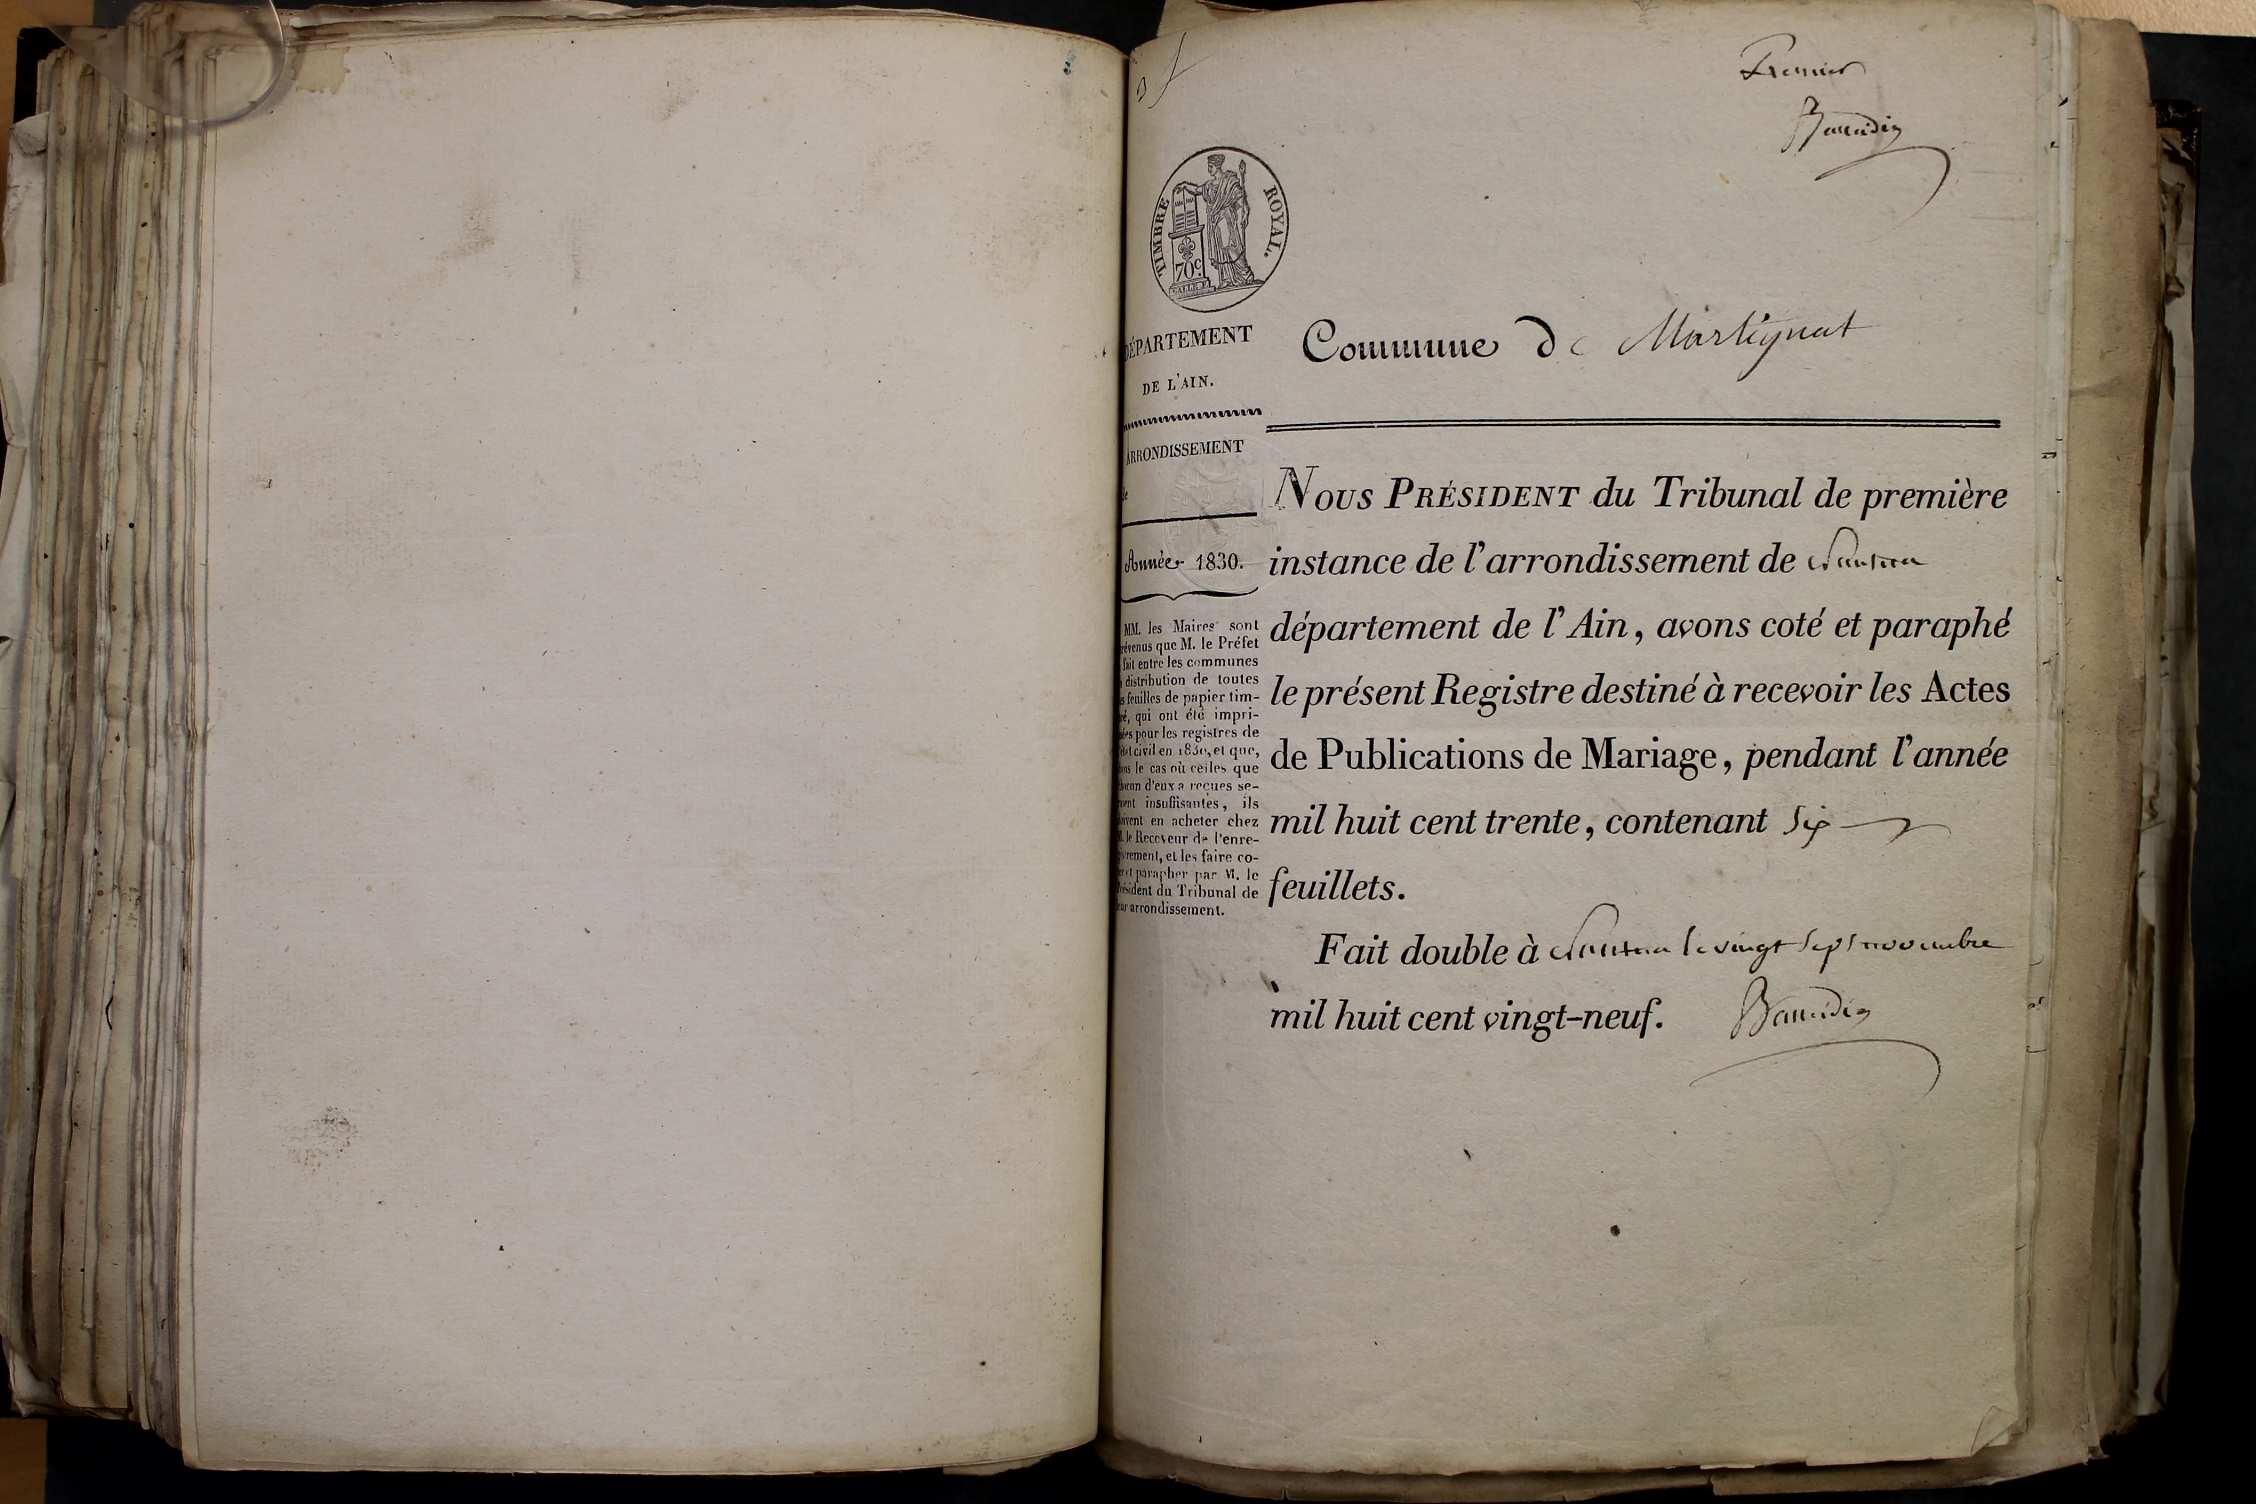 Premier
TIMBRE ROYAL.
70c
DÉPARTEMENT
DE L'AIN.
Commune de Martignat
ARRONDISSEMENT
de
Année 1830.
MM. les Maires sont
prévenus que M. le Préfet
fait entre les communes
distribution de toutes
feuilles de papier tim-
bré, qui ont été impri-
mées pour les registres de
l'état civil en 1830, et que,
dans le cas où celles que
chacun d'eux a reçues se-
raient insuffisantes, ils
doivent en acheter chez
M. le Receveur de l'enre-
gistrement, et les faire co-
ter et parapher par M. le
Président du Tribunal de
leur arrondissement.
NOUS PRÉSIDENT du Tribunal de première
instance de l'arrondissement de Nantua
département de l'Ain, avons coté et paraphé
le présent Registre destiné à recevoir les Actes
de Publications de Mariage, pendant l'année
mil huit cent trente, contenant six
feuillets.
Fait double à Nantua le vingt sept novembre
mil huit cent vingt-neuf.